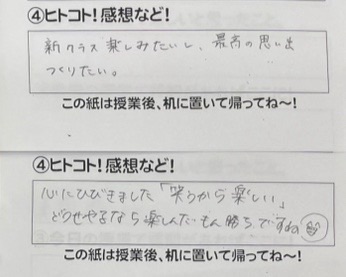 ④ヒトコト!感想など!
新クラス楽しみたいし、最高の思い出
つくりたい。
この紙は授業後、机に置いて帰ってね〜!
④ヒトコト!感想など!
心にひびきました「笑うから楽しい」
どうせやるなら楽しんだもん勝ち、ですね
この紙は授業後、机に置いて帰ってね〜!